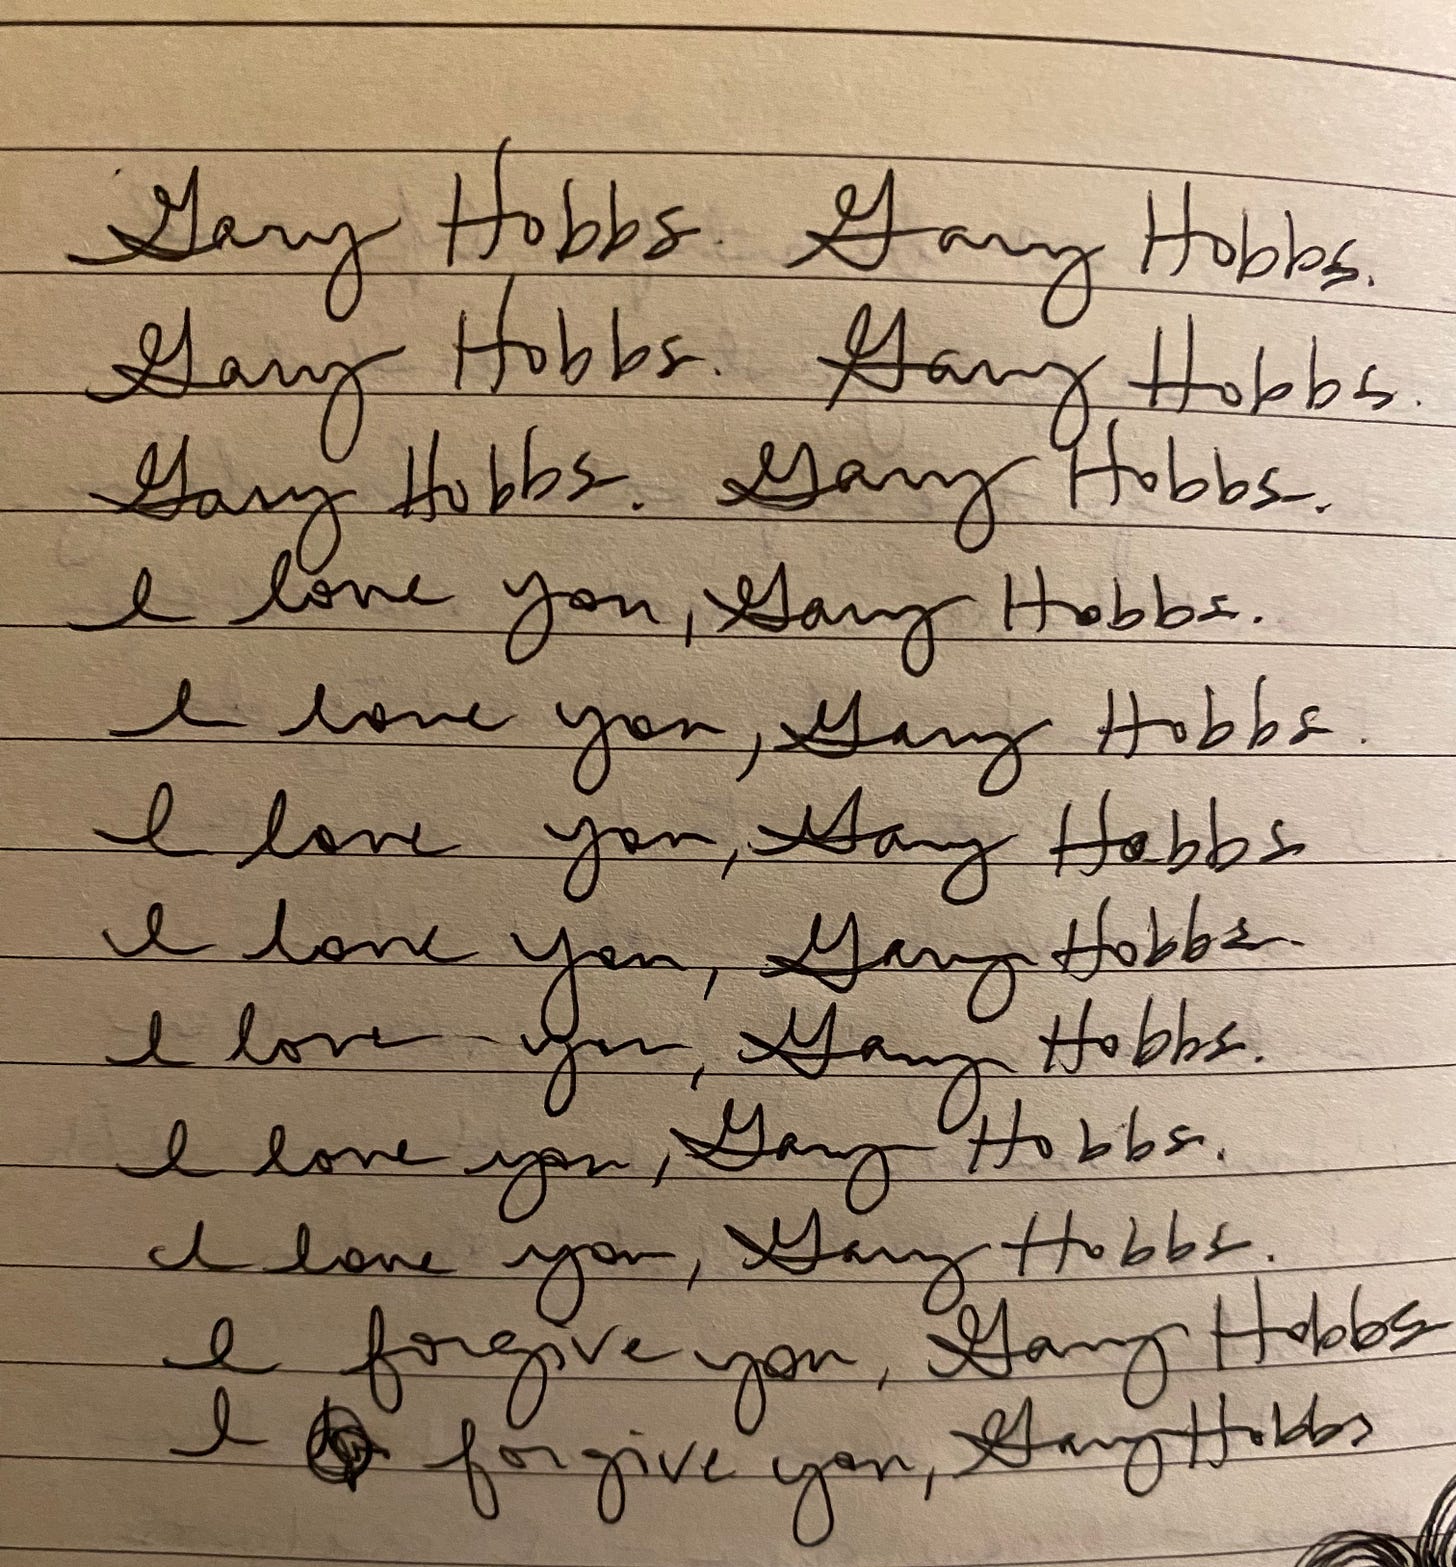 Gary Hobbs. Gary Hobbs.
Gary Hobbs. Gary Hobbs.
Gary Hobbs. Gary Hobbs.
I love you, Gary Hobbs.
I love you, Gary Hobbs.
I love you, Gary Hobbs
I love you, Gary Hobbs.
I love you, Gary Hobbs.
I love you, Gary Hobbs.
I love you, Gary Hobbs.
I forgive you, Gary Hobbs
I forgive you, Gary Hobbs